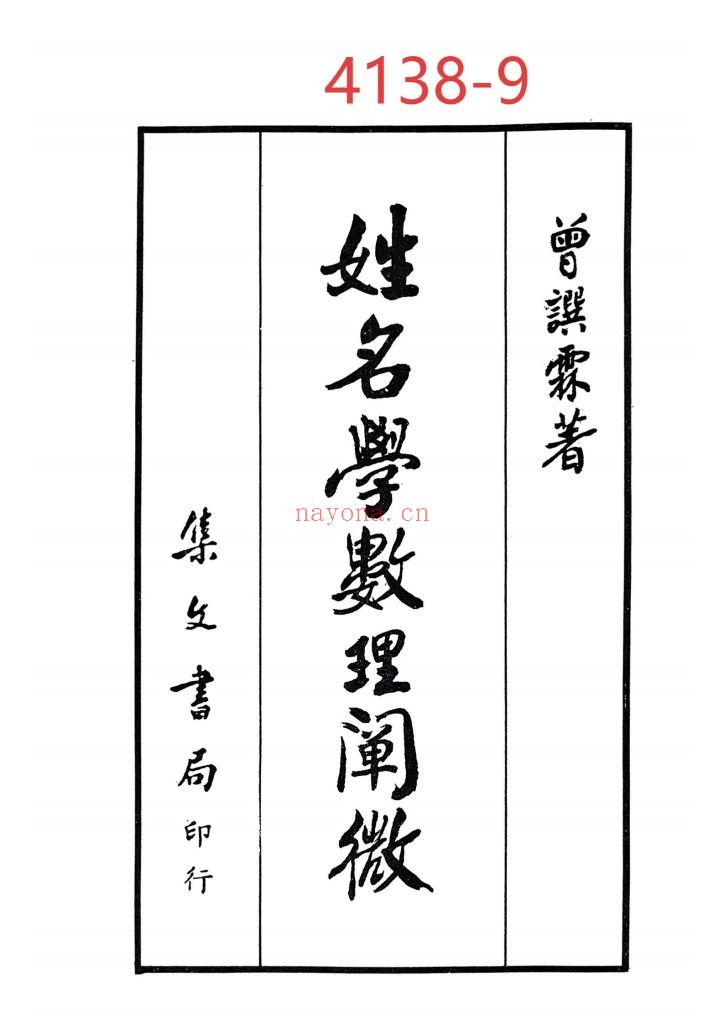 4138-9
曾譔霖著
姓名學數理闡微
nayona.cn
集文書局印行